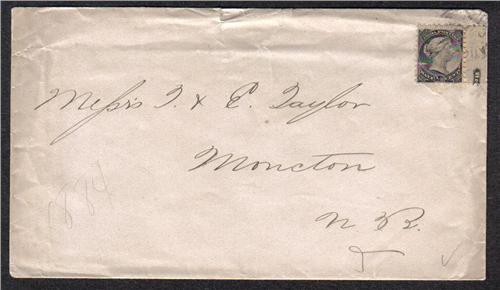 Messrs T. & E. Taylor
Moncton
N. B.
1884